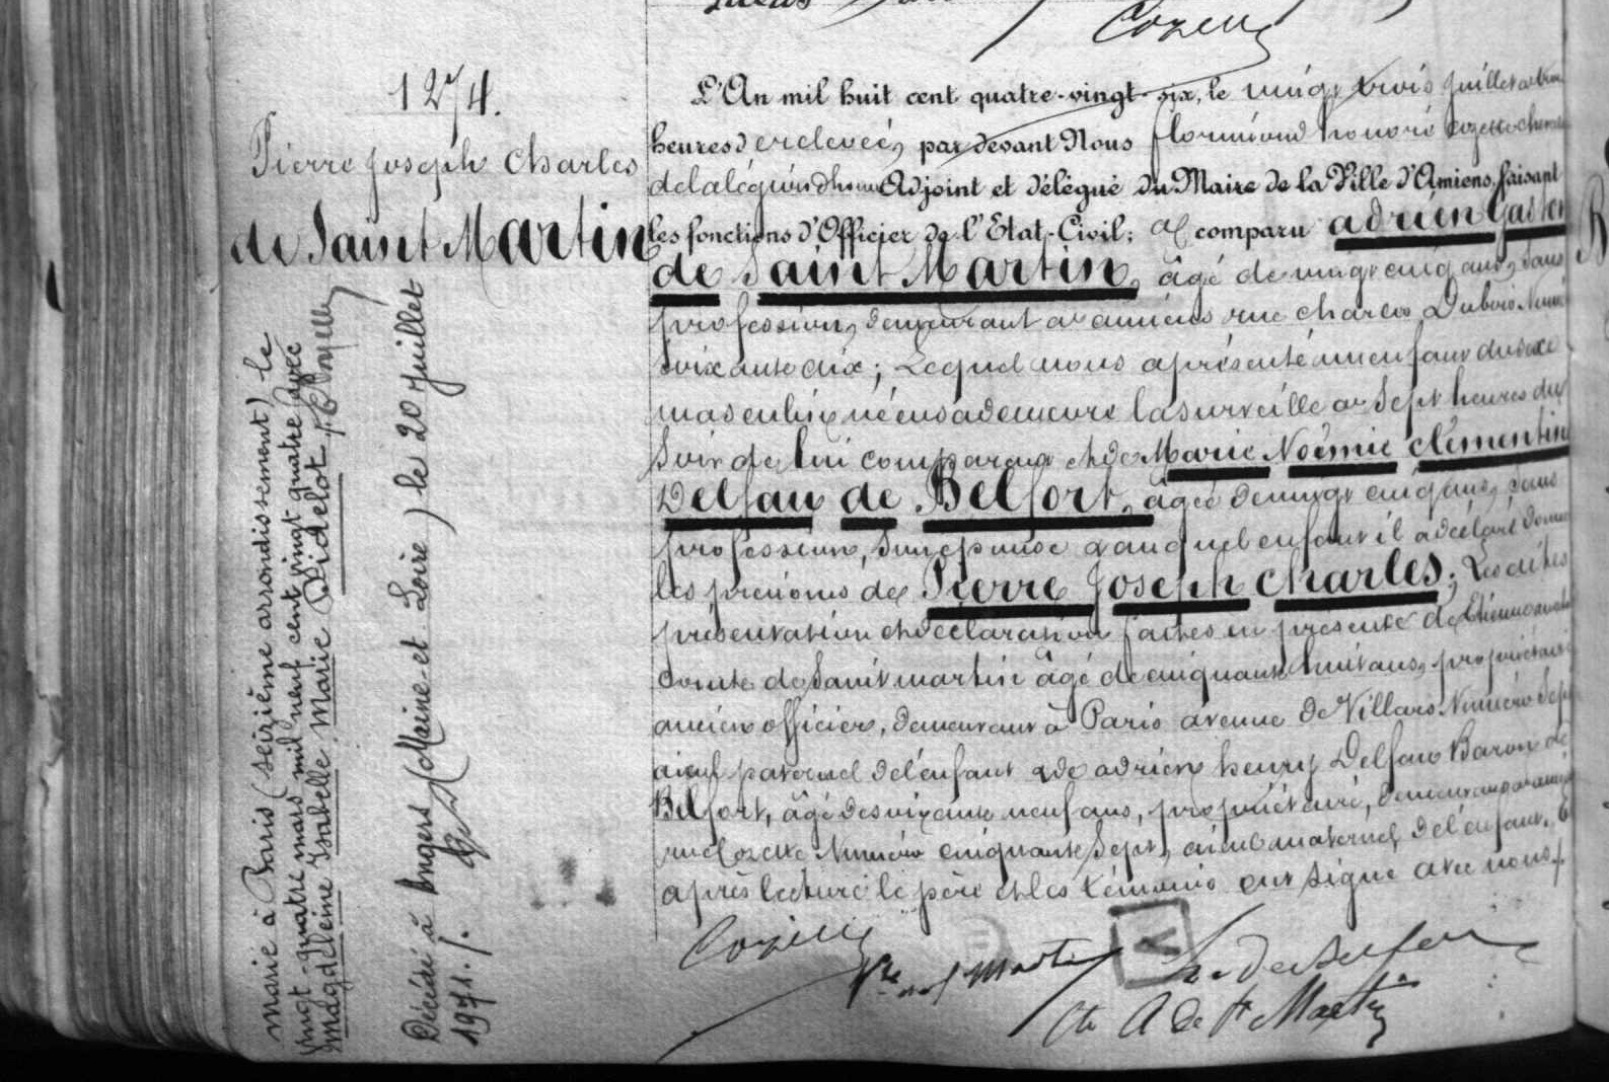 1274.
Pierre Joseph Charles
de Saint Martin
marié à Paris (seizième arrondissement) le
vingt-quatre mars mil neuf cent vingt quatre avec
Magdeleine Isabelle Marie Didelot
Décédé à Angers (Maine-et-Loire) le 20 juillet
1971.
L'An mil huit cent quatre-vingt-six, le vingt trois juillet a
heures de relevée, par devant Nous florimond honoré Cozette
de la légion d'honneur Adjoint et délégué du Maire de la Ville d'Amiens, faisant
les fonctions d'Officier de l'Etat-Civil; a comparu adrien Gaston
de Saint Martin, âgé de vingt cinq ans, sans
profession, demeurant a amiens rue charles Dubois Numéro
soixante dix; Lequel nous a présenté un enfant du sexe
masculin né en sa demeure la surveille a Sept heures du
Soir de lui comparant et de Marie Noémie clémentine
Delfau de Belfort, âgée de vingt cinq ans, sans
profession, Son epouse & auquel enfant il a déclaré donner
les prénoms de Pierre Joseph Charles; Les dites
présentation et déclaration faites en présence de
comte de Saint martin âgé de cinquante huit ans, propriétaire
ancien officier, demeurant à Paris avenue de Villars Numéro Sept
aieul paternel de l'enfant & de adrien henry Delfau Baron de
Belfort, âgé de soixante neuf ans, propriétaire, demeurant a amiens
rue Cozette Numéro cinquante Sept, aieul maternel de l'enfant. Et
après lecture le père et les témoins ont signé avec nous.
Cte A de St Martin